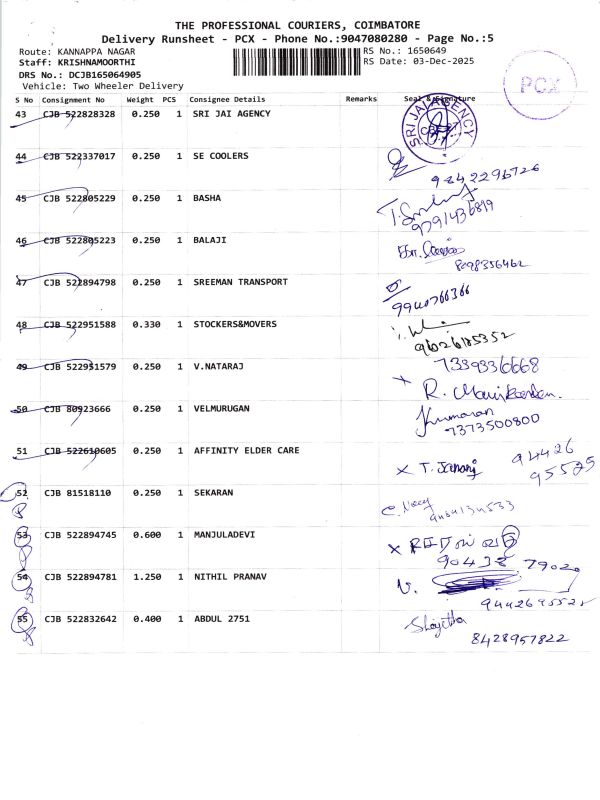 THE PROFESSIONAL COURIERS, COIMBATORE
Delivery Runsheet - PCX - Phone No.:9047080280 - Page No.:5
Route: KANNAPPA NAGAR RS No.: 1650649
Staff: KRISHNAMOORTHI RS Date: 03-Dec-2025
DRS No.: DCJB165064905
Vehicle: Two Wheeler Delivery
PCX
S No Consignment No Weight PCS Consignee Details Remarks Seal & Signature
43 CJB 522828328 0.250 1 SRI JAI AGENCY SRI JAI AGENCY
44 CJB 522337017 0.250 1 SE COOLERS
9842296726
45 CJB 522805229 0.250 1 BASHA
9791436819
46 CJB 522805223 0.250 1 BALAJI
8098356462
47 CJB 522894798 0.250 1 SREEMAN TRANSPORT
9940766366
48 CJB 522951588 0.330 1 STOCKERS&MOVERS
9602685352
49 CJB 522951579 0.250 1 V.NATARAJ 7339336668
R. Manikandan
50 CJB 80923666 0.250 1 VELMURUGAN Kumaran
7373500800
51 CJB 522610605 0.250 1 AFFINITY ELDER CARE x T. Janani 94426
95525
52 CJB 81518110 0.250 1 SEKARAN
53 CJB 522894745 0.600 1 MANJULADEVI
90438 79020
54 CJB 522894781 1.250 1 NITHIL PRANAV V.
9442695525
55 CJB 522832642 0.400 1 ABDUL 2751
8428957822